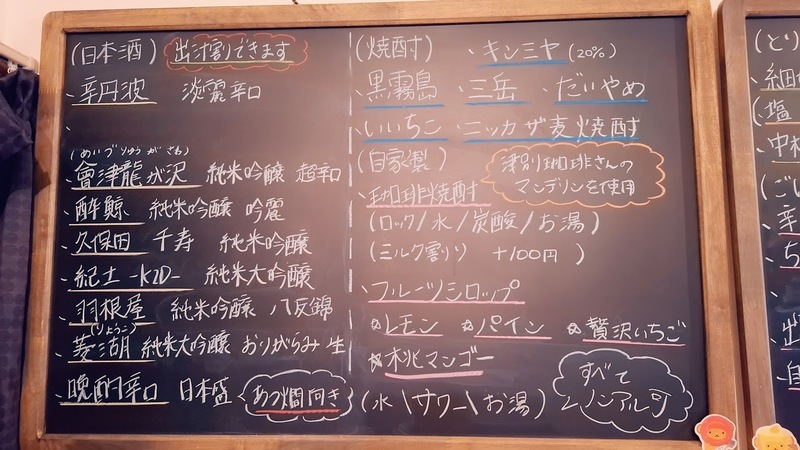 (日本酒) 出汁割りできます
・辛丹波 淡麗辛口
・
(あいづりゅうがさわ)
・會津龍が沢 純米吟醸 超辛口
・酔鯨 純米吟醸 吟麗
・久保田 千寿 純米吟醸
・紀土 -KID- 純米大吟醸
・羽根屋 純米吟醸 八反錦
(りょうこ)
・菱湖 純米大吟醸 おりがらみ 生
・晩酌辛口 日本盛 あつ燗向き
(焼酎) ・キンミヤ (20%)
・黒霧島 ・三岳 ・だいやめ
・いいちこ ・ニッカ ザ・麦焼酎
(自家製) 津別珈琲さんの
マンデリンを使用
・珈琲焼酎
(ロック/水/炭酸/お湯)
(ミルク割り +100円 )
・フルーツシロップ
☆レモン ☆パイン ☆贅沢いちご
☆桃マンゴー
(水\サワー\お湯) すべて
ノンアル可
(とり
・細
(塩
・中
(ごし
・辛
・ち
・
・出
・自